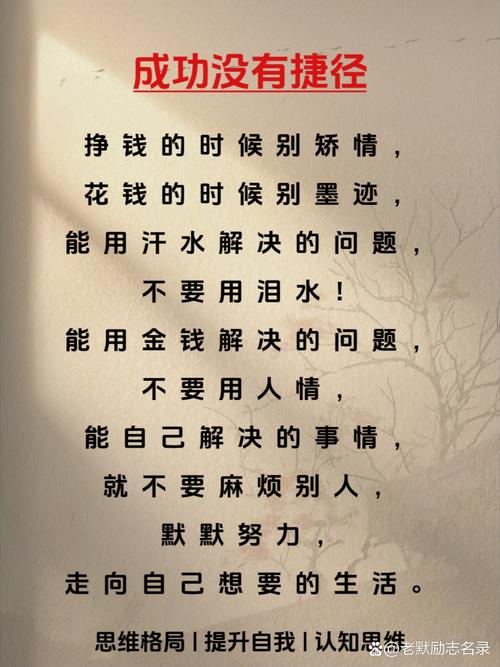 成功没有捷径
挣钱的时候别矫情,
花钱的时候别墨迹,
能用汗水解决的问题,
不要用泪水!
能用金钱解决的问题,
不要用人情,
能自己解决的事情,
就不要麻烦别人,
默默努力,
走向自己想要的生活。
思维格局 | 提升自我 | 认知思维
老默励志名录